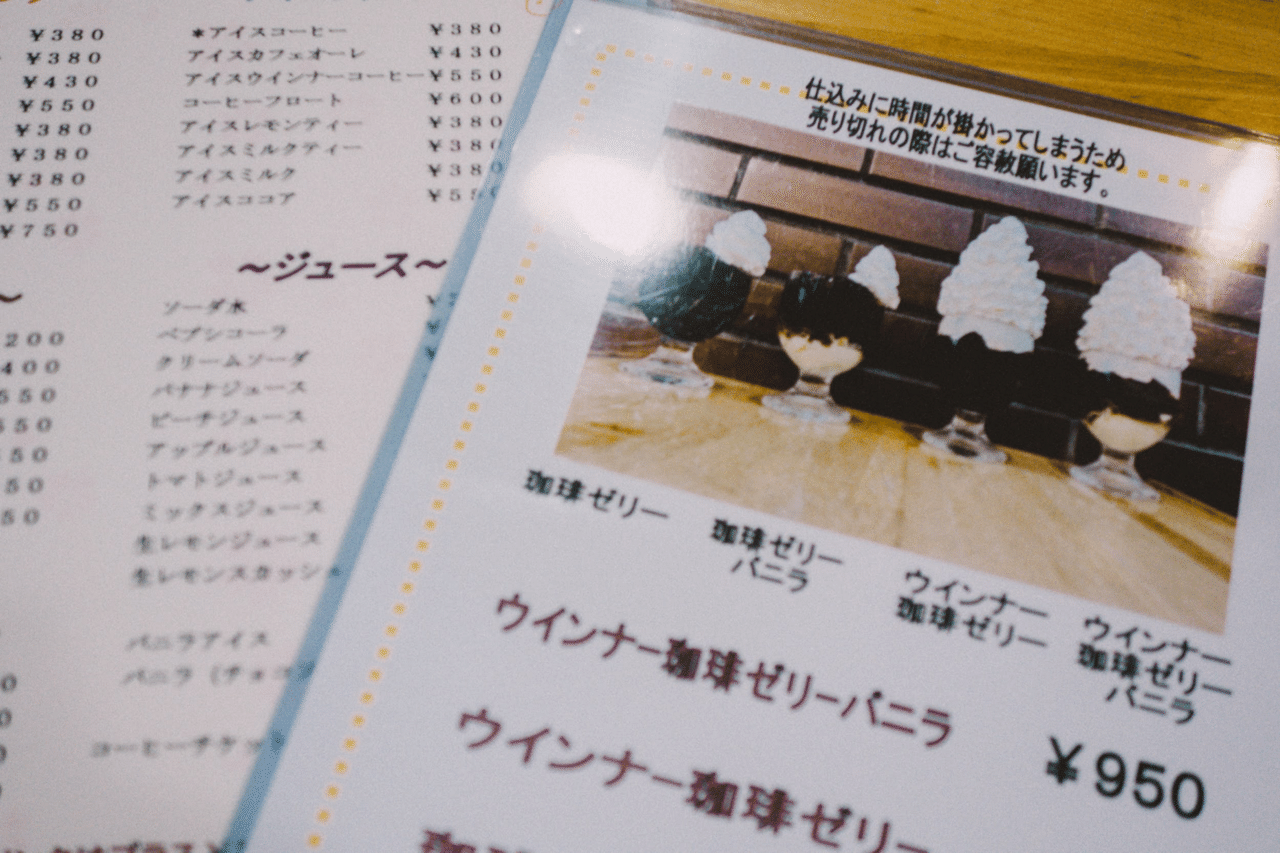 ¥380
¥380
¥430
¥550
¥380
¥380
¥380
¥550
¥750
*アイスコーヒー ¥380
アイスカフェオーレ ¥430
アイスウインナーコーヒー ¥550
コーヒーフロート ¥600
アイスレモンティー ¥380
アイスミルクティー ¥380
アイスミルク ¥380
アイスココア ¥55
～ジュース～
200
400
550
550
50
50
50
ソーダ水
ペプシコーラ
クリームソーダ
バナナジュース
ピーチジュース
アップルジュース
トマトジュース
ミックスジュース
生レモンジュース
生レモンスカッシ
バニラアイス
バニラ（チョコ
コーヒーチケッ
仕込みに時間が掛かってしまうため
売り切れの際はご容赦願います。
珈琲ゼリー
珈琲ゼリー
バニラ
ウインナー
珈琲ゼリー
ウインナー
珈琲ゼリー
バニラ
ウインナー珈琲ゼリーバニラ
¥950
ウインナー珈琲ゼリー
珈琲ゼリー